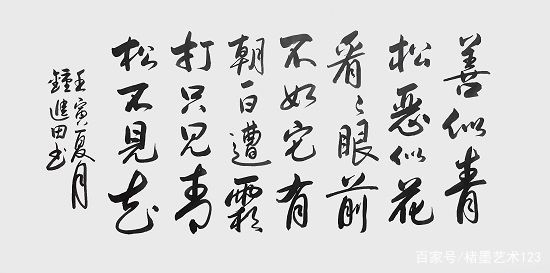 善似青
松惡似花
看〻眼前
不如它有
朝一日遭霜
打只见青
松不見花
壬寅夏月
鐘進田书
百家号/楮墨艺术123